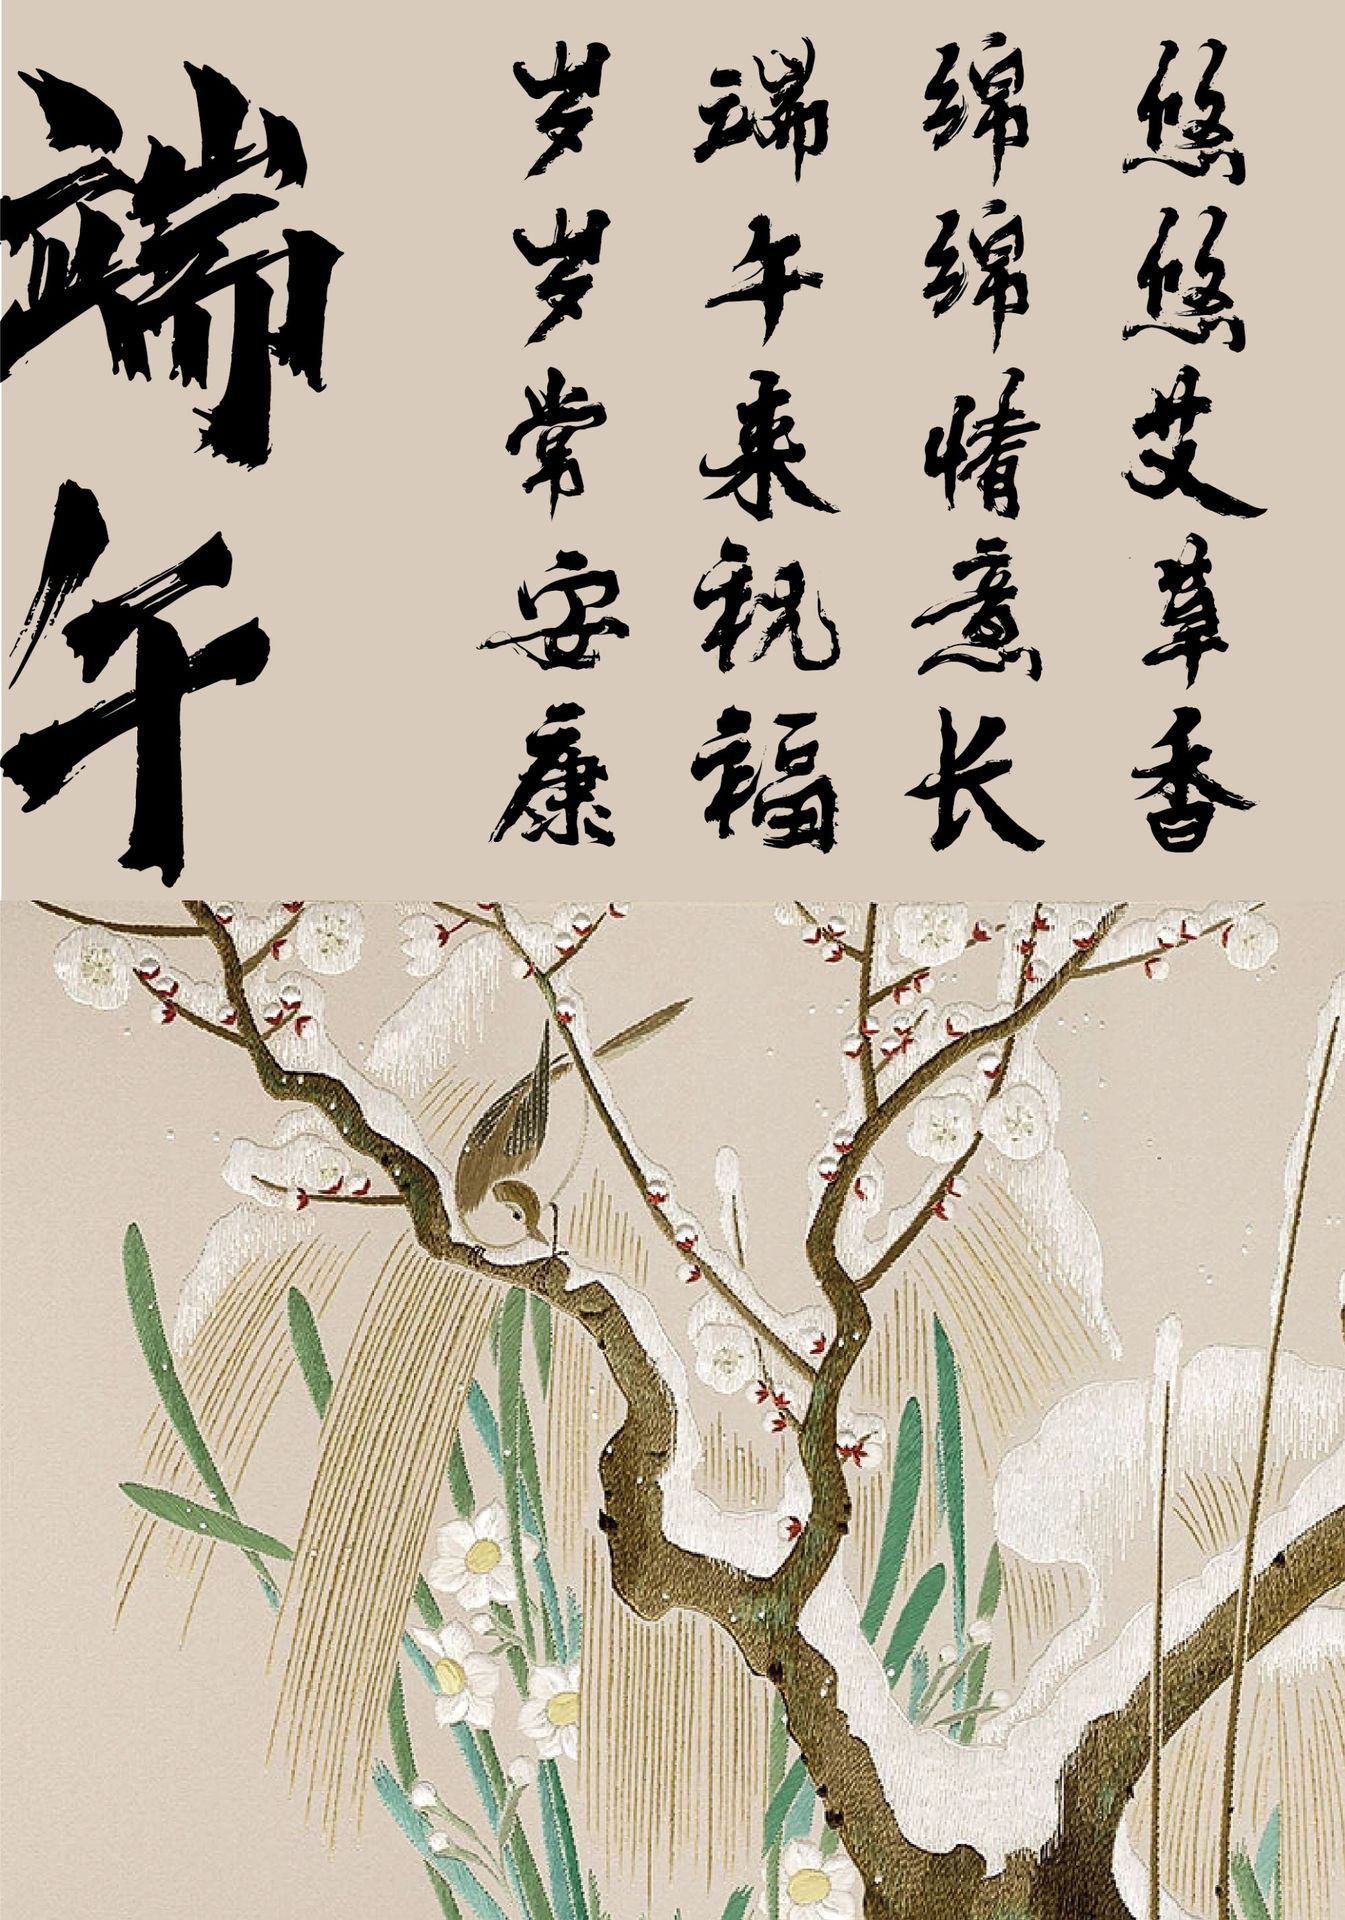 悠悠艾草香
绵绵情意长
端午来祝福
岁岁常安康
端午